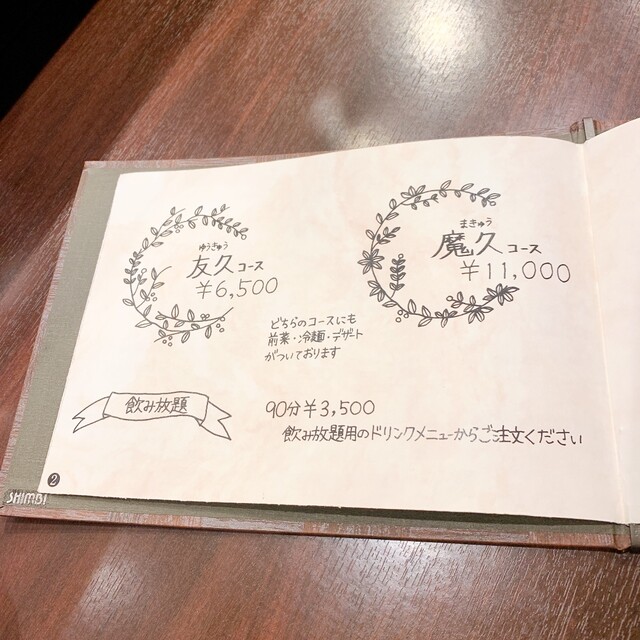 ゆうきゅう
友久コース
¥6,500
まきゅう
魔久コース
¥11,000
どちらのコースにも
前菜・冷麺・デザート
がついております
飲み放題
90分¥3,500
飲み放題用のドリンクメニューからご注文ください
2
SHIMBI